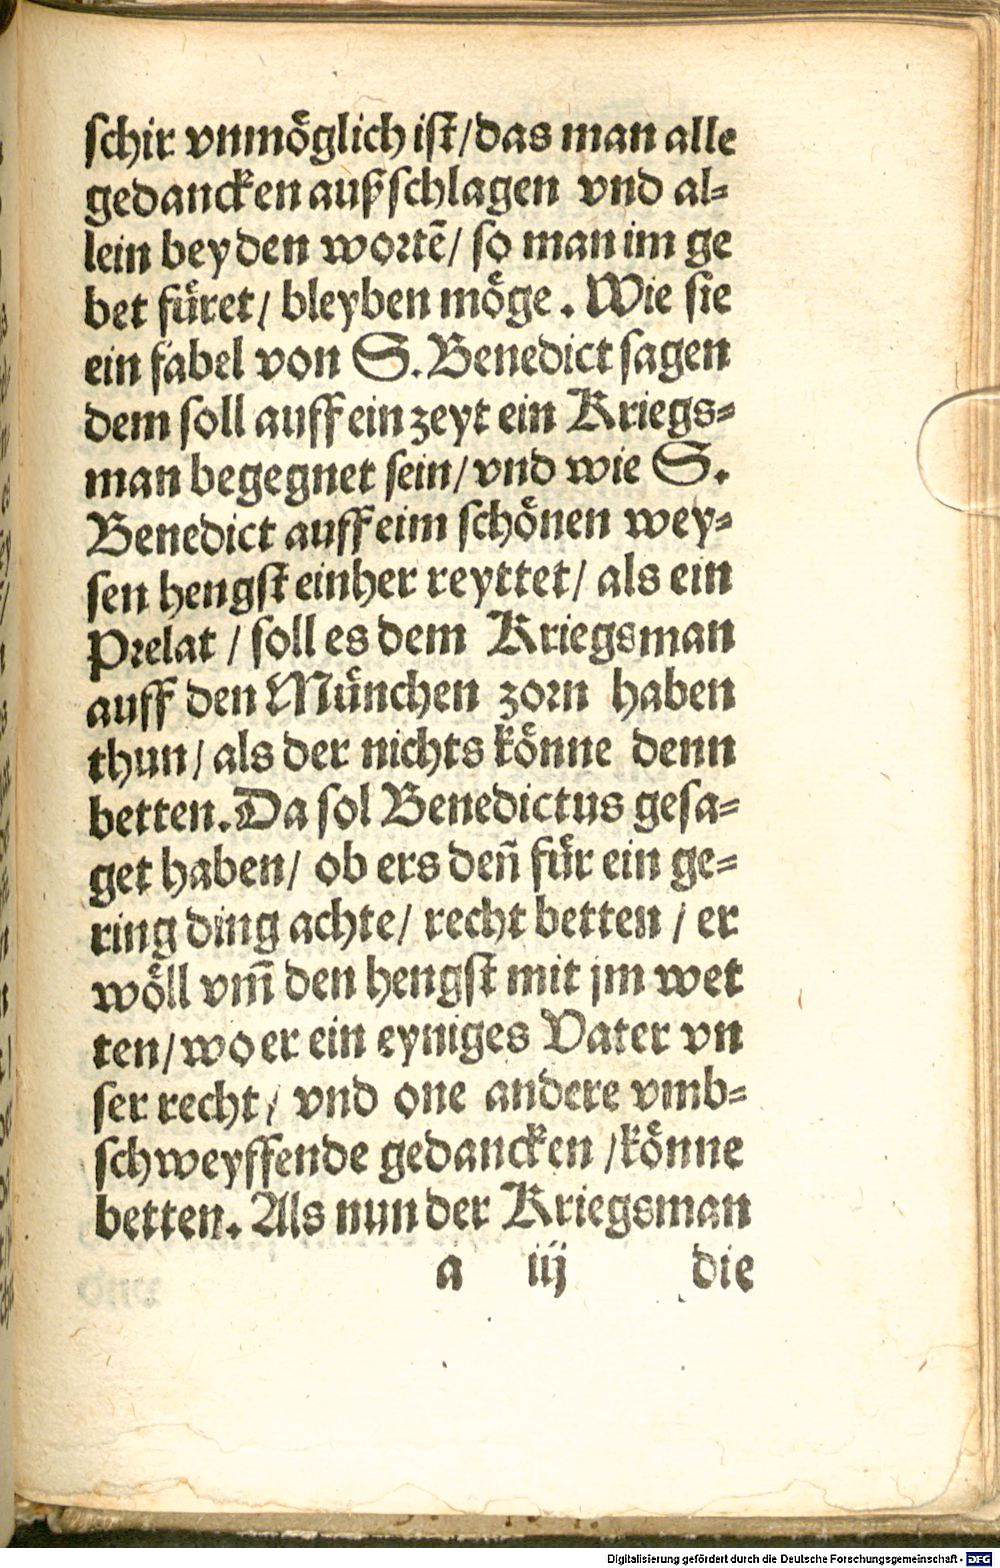 schir vnmöglich ist/das man alle
gedancken außschlagen vnd al⸗
lein bey den wortẽ/ so man im ge
bet füret/ bleyben möge. Wie sie
ein fabel von S. Benedict sagen
dem soll auff ein zeyt ein Kriegs⸗
man begegnet sein/vnd wie S.
Benedict auff eim schönen wey⸗
sen hengst einher reyttet/ als ein
Prelat / soll es dem Kriegsman
auff den München zorn haben
thun/ als der nichts könne denn
betten. Da sol Benedictus gesa⸗
get haben/ ob ers deñ für ein ge⸗
ring ding achte/ recht betten / er
wöll vm̃ den hengst mit jm wet
ten/wo er ein eyniges Vater vn
ser recht/ vnd one andere vmb⸗
schweyffende gedancken /könne
betten. Als nun der Kriegsman
a iij die
Digitalisierung gefördert durch die Deutsche Forschungsgemeinschaft - DFG